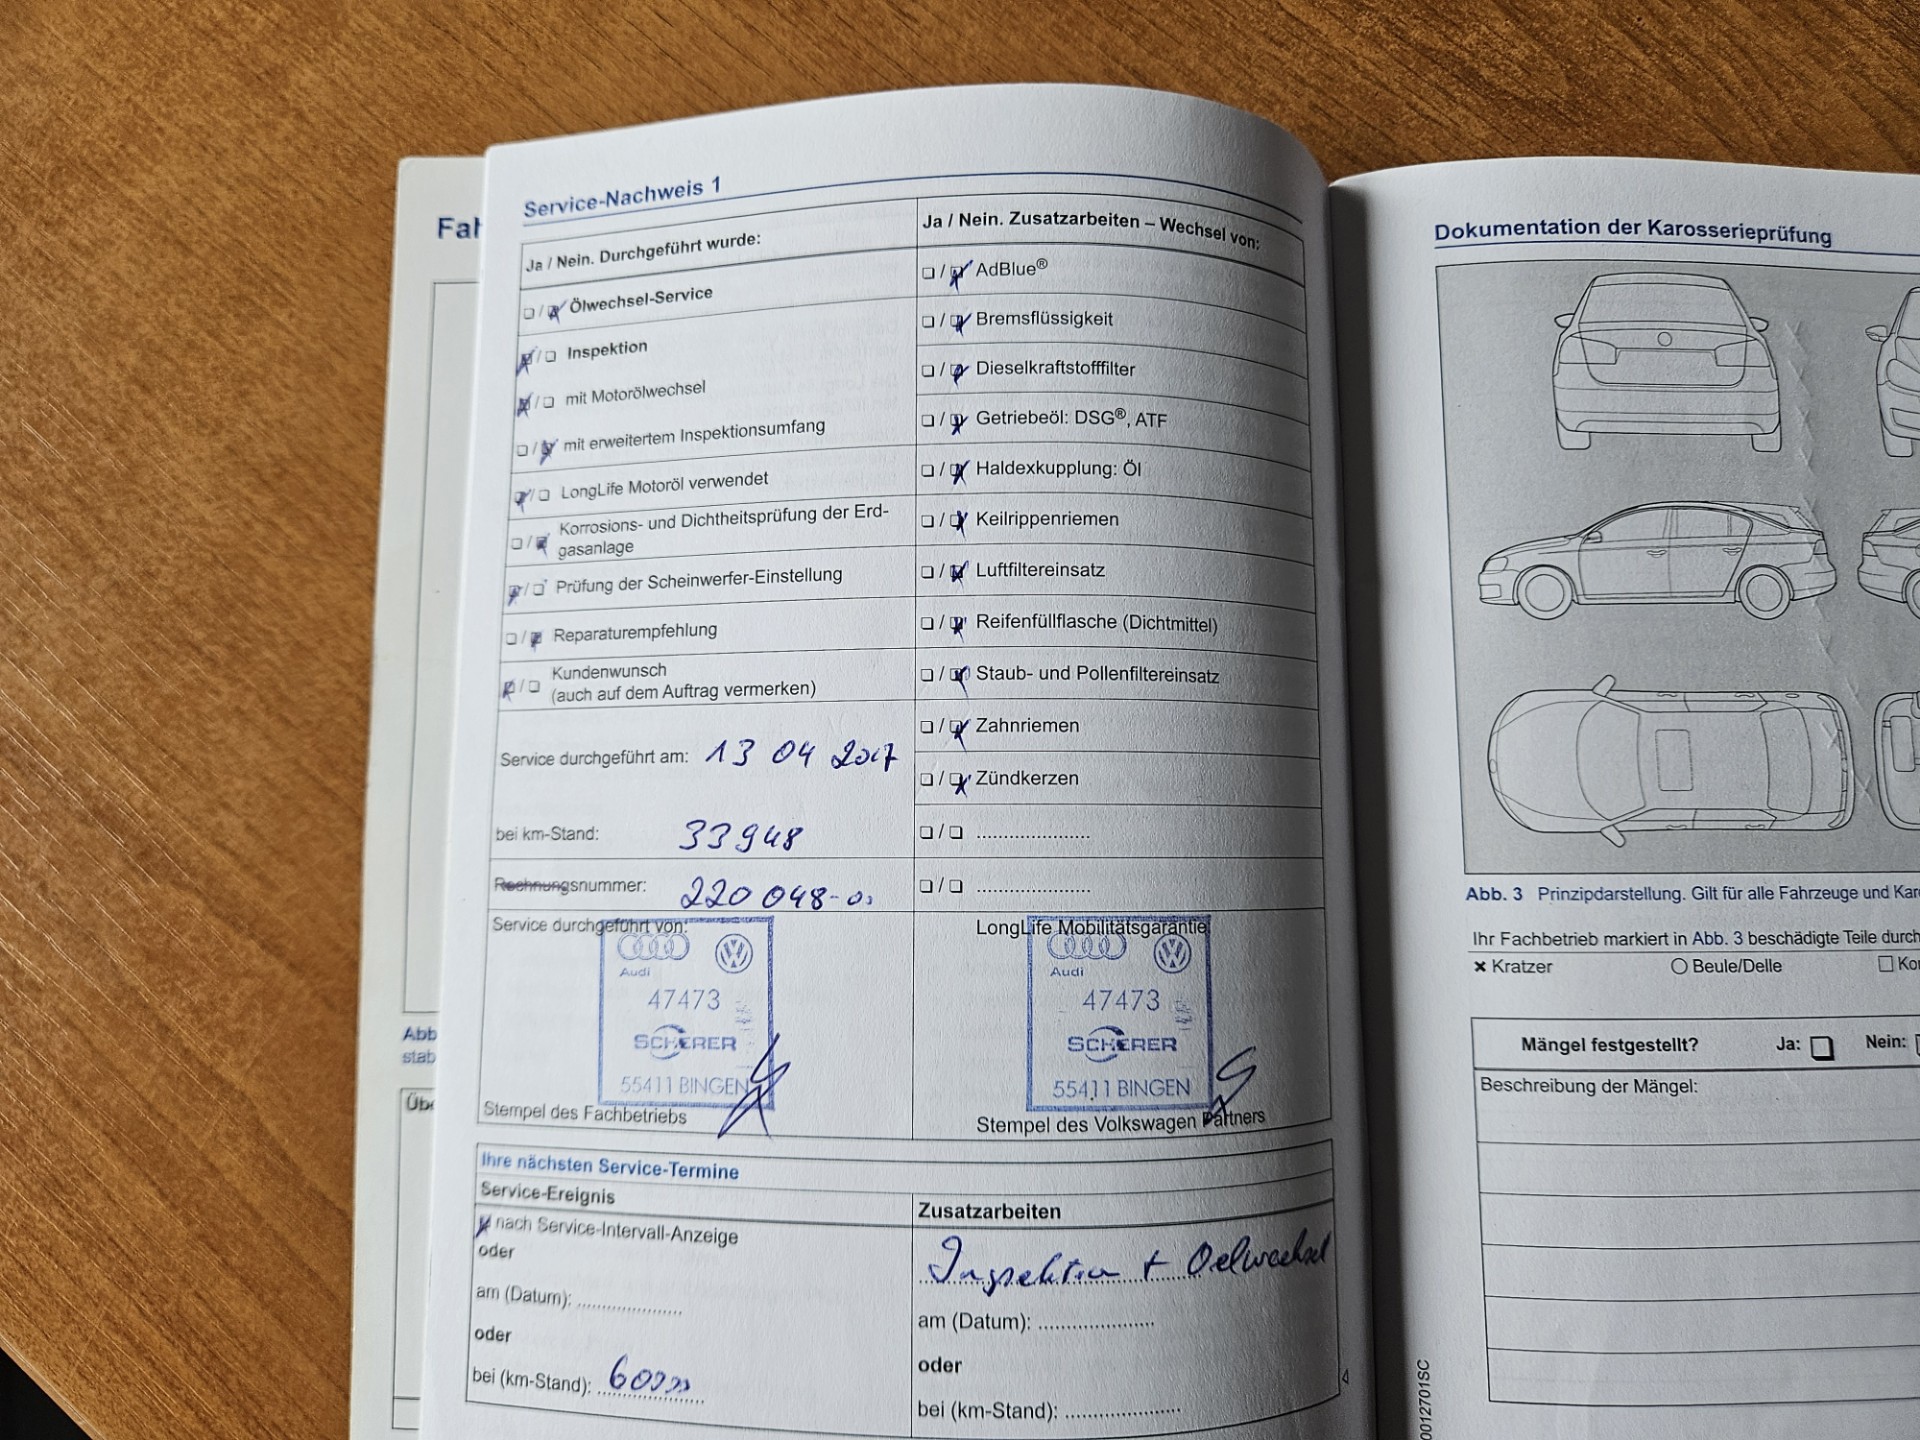 Fah
Service-Nachweis 1
Ja / Nein. Durchgeführt wurde:
Ölwechsel-Service
Inspektion
mit Motorölwechsel
mit erweitertem Inspektionsumfang
LongLife Motoröl verwendet
Korrosions- und Dichtheitsprüfung der Erd-
gasanlage
Prüfung der Scheinwerfer-Einstellung
Reparaturempfehlung
Kundenwunsch
(auch auf dem Auftrag vermerken)
Service durchgeführt am: 13 04 2017
bei km-Stand: 33948
Rechnungsnummer: 220 048-
Service durchgeführt von:
Audi
47473
SCHERER
55411 BINGEN
Stempel des Fachbetriebs
Ja / Nein. Zusatzarbeiten – Wechsel von:
AdBlue®
Bremsflüssigkeit
Dieselkraftstofffilter
Getriebeöl: DSG®, ATF
Haldexkupplung: Öl
Keilrippenriemen
Luftfiltereinsatz
Reifenfüllflasche (Dichtmittel)
Staub- und Pollenfiltereinsatz
Zahnriemen
Zündkerzen
LongLife Mobilitätsgarantie
Audi
47473
SCHERER
55411 BINGEN
Stempel des Volkswagen Partners
Ihre nächsten Service-Termine
Service-Ereignis
nach Service-Intervall-Anzeige
oder
am (Datum):
oder
bei (km-Stand): 60000
Zusatzarbeiten
Inspektion + Oelwechsel
am (Datum):
oder
bei (km-Stand):
4
Abb
stab
Übe
Dokumentation der Karosserieprüfung
Abb. 3 Prinzipdarstellung. Gilt für alle Fahrzeuge und Kar
Ihr Fachbetrieb markiert in Abb. 3 beschädigte Teile durch
Kratzer
Beule/Delle
Ko
Mängel festgestellt? Ja: Nein:
Beschreibung der Mängel:
0012701SC